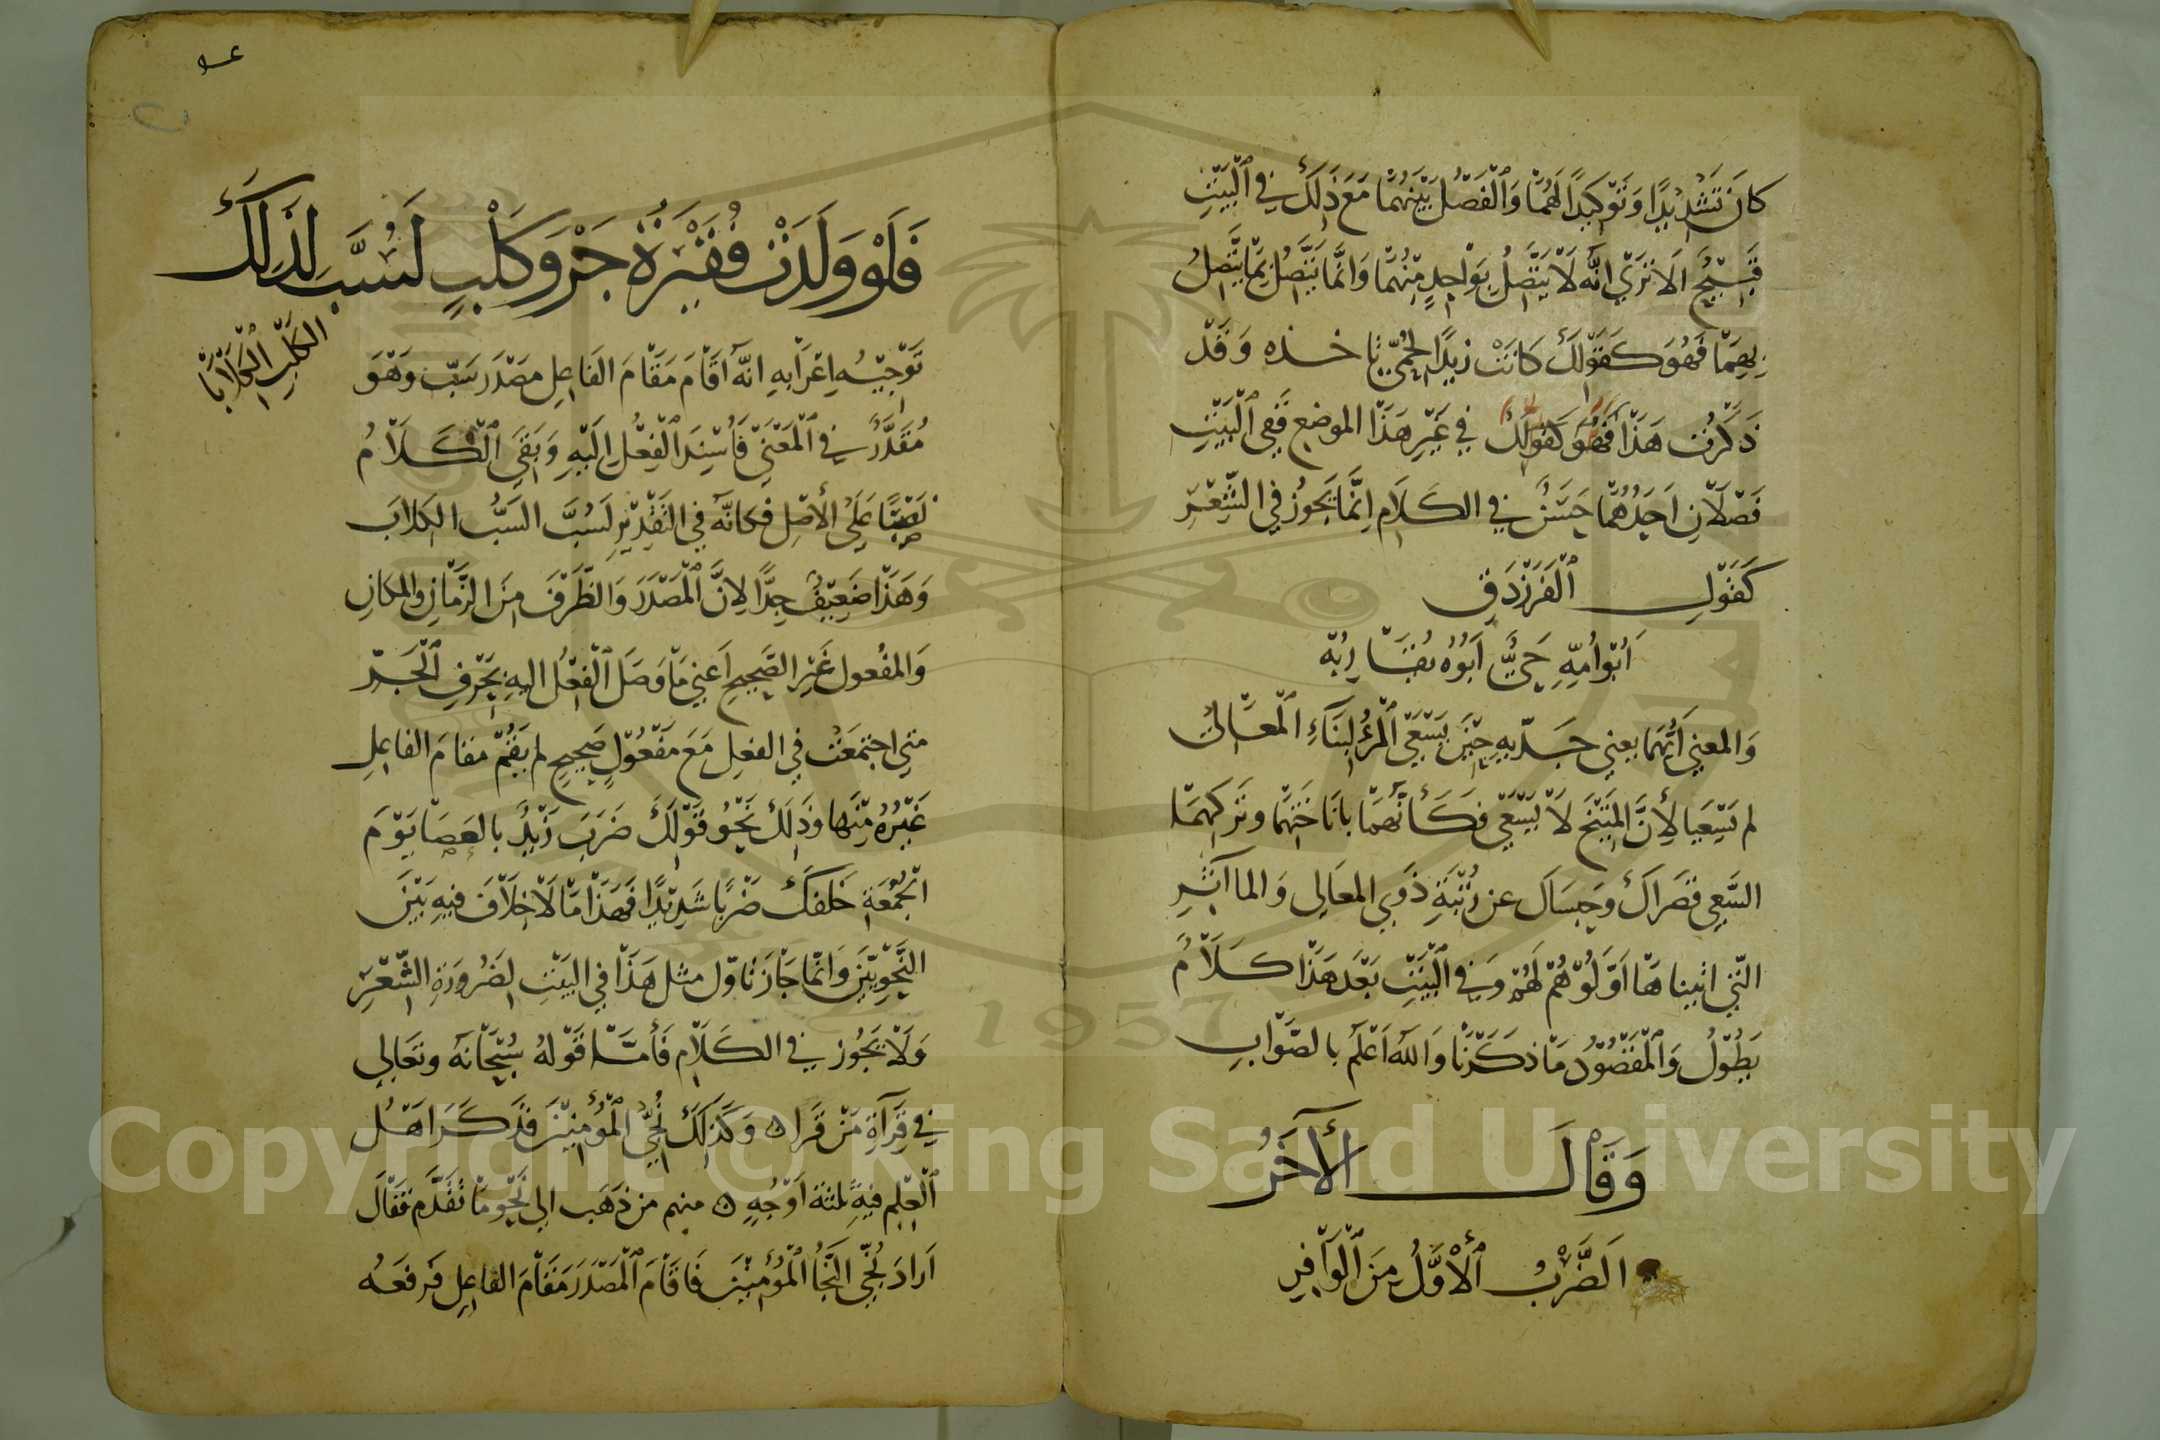 كانَ تَشْدِيْدًا وَتَوْكِيدًا لَهُمَا وَالْفَصْلُ بَيْنَهُمَا مَعَ ذَلِكَ فِي الْبَيْتِ
قَبِيْحٌ اَلَا تَرَي انَّهُ لَا يَتَّصِلُ بِوَاحِدٍ مِنْهُمَا وَانَّمَا يَتَّصِلُ بِمَا يَتَّصِلُ
بِهِمَا فَهُوَ كَقَوْلِكَ كَانَتْ زيدًا الحُمَّى تاخذه وَقَدْ
ذَكَرْتُ هَذَا فَهُوَ كَقَولِكَ فِي غَيْرِ هَذَا الموضع فَفِي الْبَيْتِ
فَصْلَانِ اَحَدُهُمَا حَسَنٌ فِي الكَلَامِ اِنَّمَا يَجُوزُ فِي الشِّعْرِ
كَقَوْلِ الْفَرَزْدَقِ
اَبُوْ اُمِّهِ حَيٌّ اَبُوْهُ يُقَارِبُهْ
وَالمعنِي اَنَّهُمَا يعني جَدّيهِ حِيْنَ يَسْعَي الْمَرْءُ لِبِنَاءِ الْمَعَالِي
لم يَسْعَيَا لأَنَّ المُنْتَحِ لَا يَسْعَي فَكَأَنَّهُمَا باناختهما وتركهما
السَّعي قصراك وحبساك عن رُتْبَةِ ذَوي المعَالِى وَالماآثِرِ
الَّتِي اثبناهَا اَوَّلُوْهُمْ لَهُمْ وَفِي الْبَيْتِ بَعْدَ هَذَا كَلَامٌ
يَطُوْلُ وَالْمَقْصُوْدُ مَا ذَكَرْنَا وَاللهُ اَعْلَمُ بالصَّوَابِ
وَقَالَ الأَخَرُ
اَلضَّرْبُ الْأَوَّلُ مِنَ الْوَافِرِ
فَلَوْ وَلَدَتْ فُقَيْرَةُ جَرْوَ كَلْبٍ لَسُبَّ بِذَلِكَ
الكَلْبِ الْكِلَابَا
تَوْجِيْهُ اِعْرَابِهِ انَّهُ اَقَامَ مَقَامَ الفَاعِلِ مَصْدَر سَبّ وَهْوَ
مُقَدَّرٌ فِي الْمَعْنَي فَأُسْنِدَ الْفِعْلُ اِلَيْهِ وَبَقِيَ الْكَلَامُ
نَصْبًا عَلَى الأَصْلِ فَكانَّهُ فِي التَقْدِيْرِ لَسُبَّ السَبُّ الكِلابَ
وَهَذَا ضَعِيْفٌ جِدًّا لِانَّ الْمَصْدَرَ وَالظَّرْفَ مِنَ الزَّمَانِ والمكانِ
وَالمفعول غَيْرِ الصَّحِيحِ اَعني مَا وَصَلَ الْفِعْلُ اليهِ بِحَرْفِ الْجَرِّ
متي اجتمعَتْ فِي الفعلِ مَعَ مَفْعُوْلٍ صَحِيحٍ لم يَقُمْ مَقامَ الفاعِلِ
غَيْرُهُ مِنْهَا وذَلِكَ نَحْوُ قَوْلِكَ ضَرَبَ زَيْدٌ بالعَصَا يَوْمَ
الجُمُعَةِ خَلفَكَ ضَرْبًا شَدِيْدًا فَهَذَا مَا لَا خِلَافَ فِيهِ بَيْنَ
النَّحْوِيّيْنَ وَانّما جَازَ تَاوّل مثل هَذَا فِي البَيْتِ لِضَرُورَةِ الشِّعْرِ
وَلَا يَجُوز فِي الكَلَامِ فَأَمَّا قَوْلُهُ سُبْحَانَهُ وتَعَالِى
فِي قِرَآةِ مَنْ قَرَا ه وَكَذَلِكَ نُجِّيَ الْمُؤْمِنِيْنَ فَذَكَرَ اهْلُ
الْعِلْمِ فيهِ ثلثة اَوْجُهٍ ه منهم من ذَهَبَ الي نَحْوِ مَا تَقَدَّم فَقَالَ
اَرَادَ نُجِّي النَّجَأُ الْمُؤْمِنِيْنَ فَاقَامَ الْمَصْدَرَ مَقَامَ الفَاعِلِ فَرفعَهُ
Copyright © King Saud University
1957